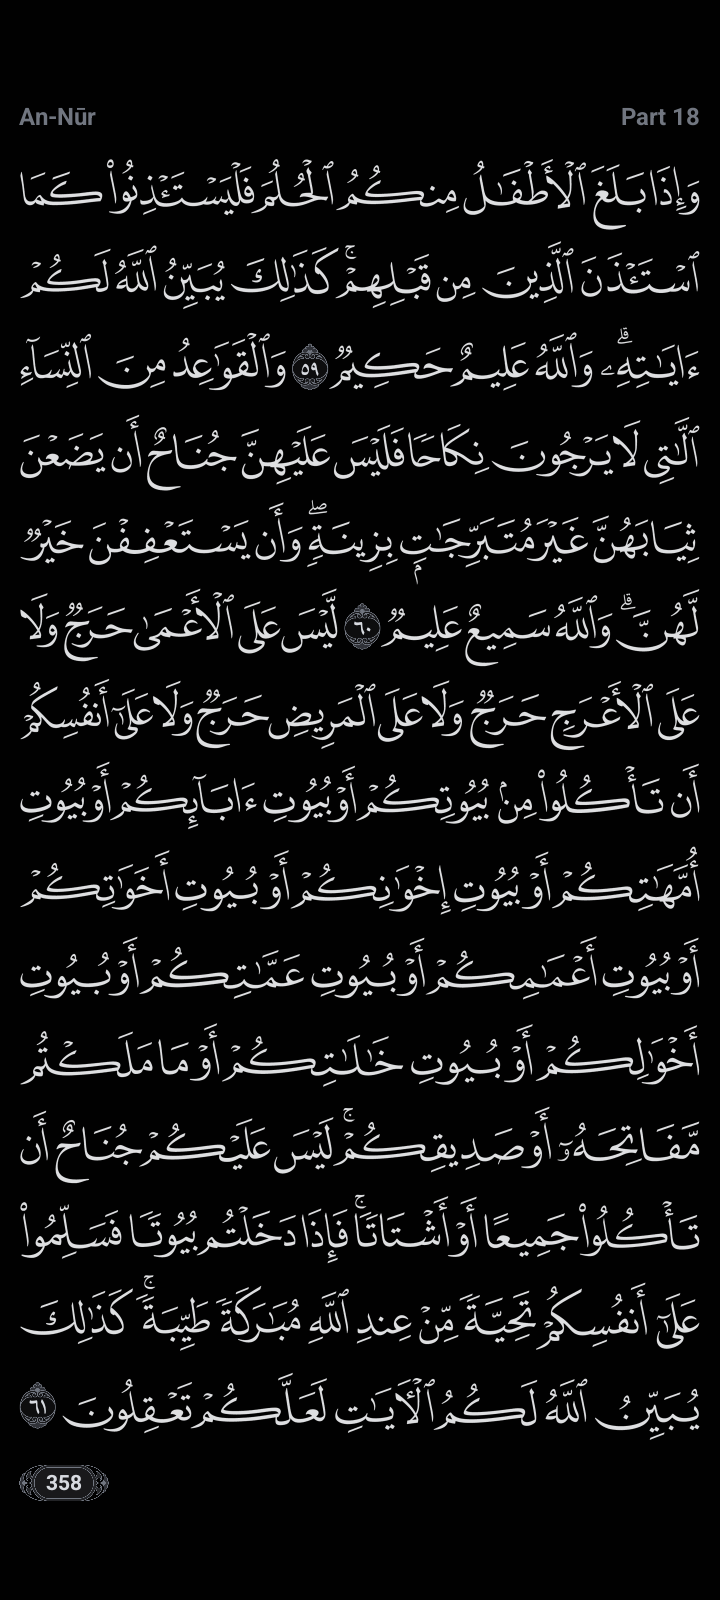 An-Nūr Part 18
وَإِذَا بَلَغَ ٱلْأَطْفَـٰلُ مِنكُمُ ٱلْحُلُمَ فَلْيَسْتَـْٔذِنُوا۟ كَمَا
ٱسْتَـْٔذَنَ ٱلَّذِينَ مِن قَبْلِهِمْ ۚ كَذَٰلِكَ يُبَيِّنُ ٱللَّهُ لَكُمْ
ءَايَـٰتِهِۦ ۗ وَٱللَّهُ عَلِيمٌ حَكِيمٌۭ ٥٩ وَٱلْقَوَٰعِدُ مِنَ ٱلنِّسَآءِ
ٱلَّـٰتِى لَا يَرْجُونَ نِكَاحًۭا فَلَيْسَ عَلَيْهِنَّ جُنَاحٌ أَن يَضَعْنَ
ثِيَابَهُنَّ غَيْرَ مُتَبَرِّجَـٰتٍۭ بِزِينَةٍۢ ۖ وَأَن يَسْتَعْفِفْنَ خَيْرٌۭ
لَّهُنَّ ۗ وَٱللَّهُ سَمِيعٌ عَلِيمٌۭ ٦٠ لَّيْسَ عَلَى ٱلْأَعْمَىٰ حَرَجٌۭ وَلَا
عَلَى ٱلْأَعْرَجِ حَرَجٌۭ وَلَا عَلَى ٱلْمَرِيضِ حَرَجٌۭ وَلَا عَلَىٰٓ أَنفُسِكُمْ
أَن تَأْكُلُوا۟ مِنۢ بُيُوتِكُمْ أَوْ بُيُوتِ ءَابَآئِكُمْ أَوْ بُيُوتِ
أُمَّهَـٰتِكُمْ أَوْ بُيُوتِ إِخْوَٰنِكُمْ أَوْ بُيُوتِ أَخَوَٰتِكُمْ
أَوْ بُيُوتِ أَعْمَـٰمِكُمْ أَوْ بُيُوتِ عَمَّـٰتِكُمْ أَوْ بُيُوتِ
أَخْوَٰلِكُمْ أَوْ بُيُوتِ خَـٰلَـٰتِكُمْ أَوْ مَا مَلَكْتُم
مَّفَاتِحَهُۥٓ أَوْ صَدِيقِكُمْ ۚ لَيْسَ عَلَيْكُمْ جُنَاحٌ أَن
تَأْكُلُوا۟ جَمِيعًا أَوْ أَشْتَاتًۭا ۚ فَإِذَا دَخَلْتُم بُيُوتًۭا فَسَلِّمُوا۟
عَلَىٰٓ أَنفُسِكُمْ تَحِيَّةًۭ مِّنْ عِندِ ٱللَّهِ مُبَـٰرَكَةًۭ طَيِّبَةًۭ ۚ كَذَٰلِكَ
يُبَيِّنُ ٱللَّهُ لَكُمُ ٱلْـَٔايَـٰتِ لَعَلَّكُمْ تَعْقِلُونَ ٦١
358